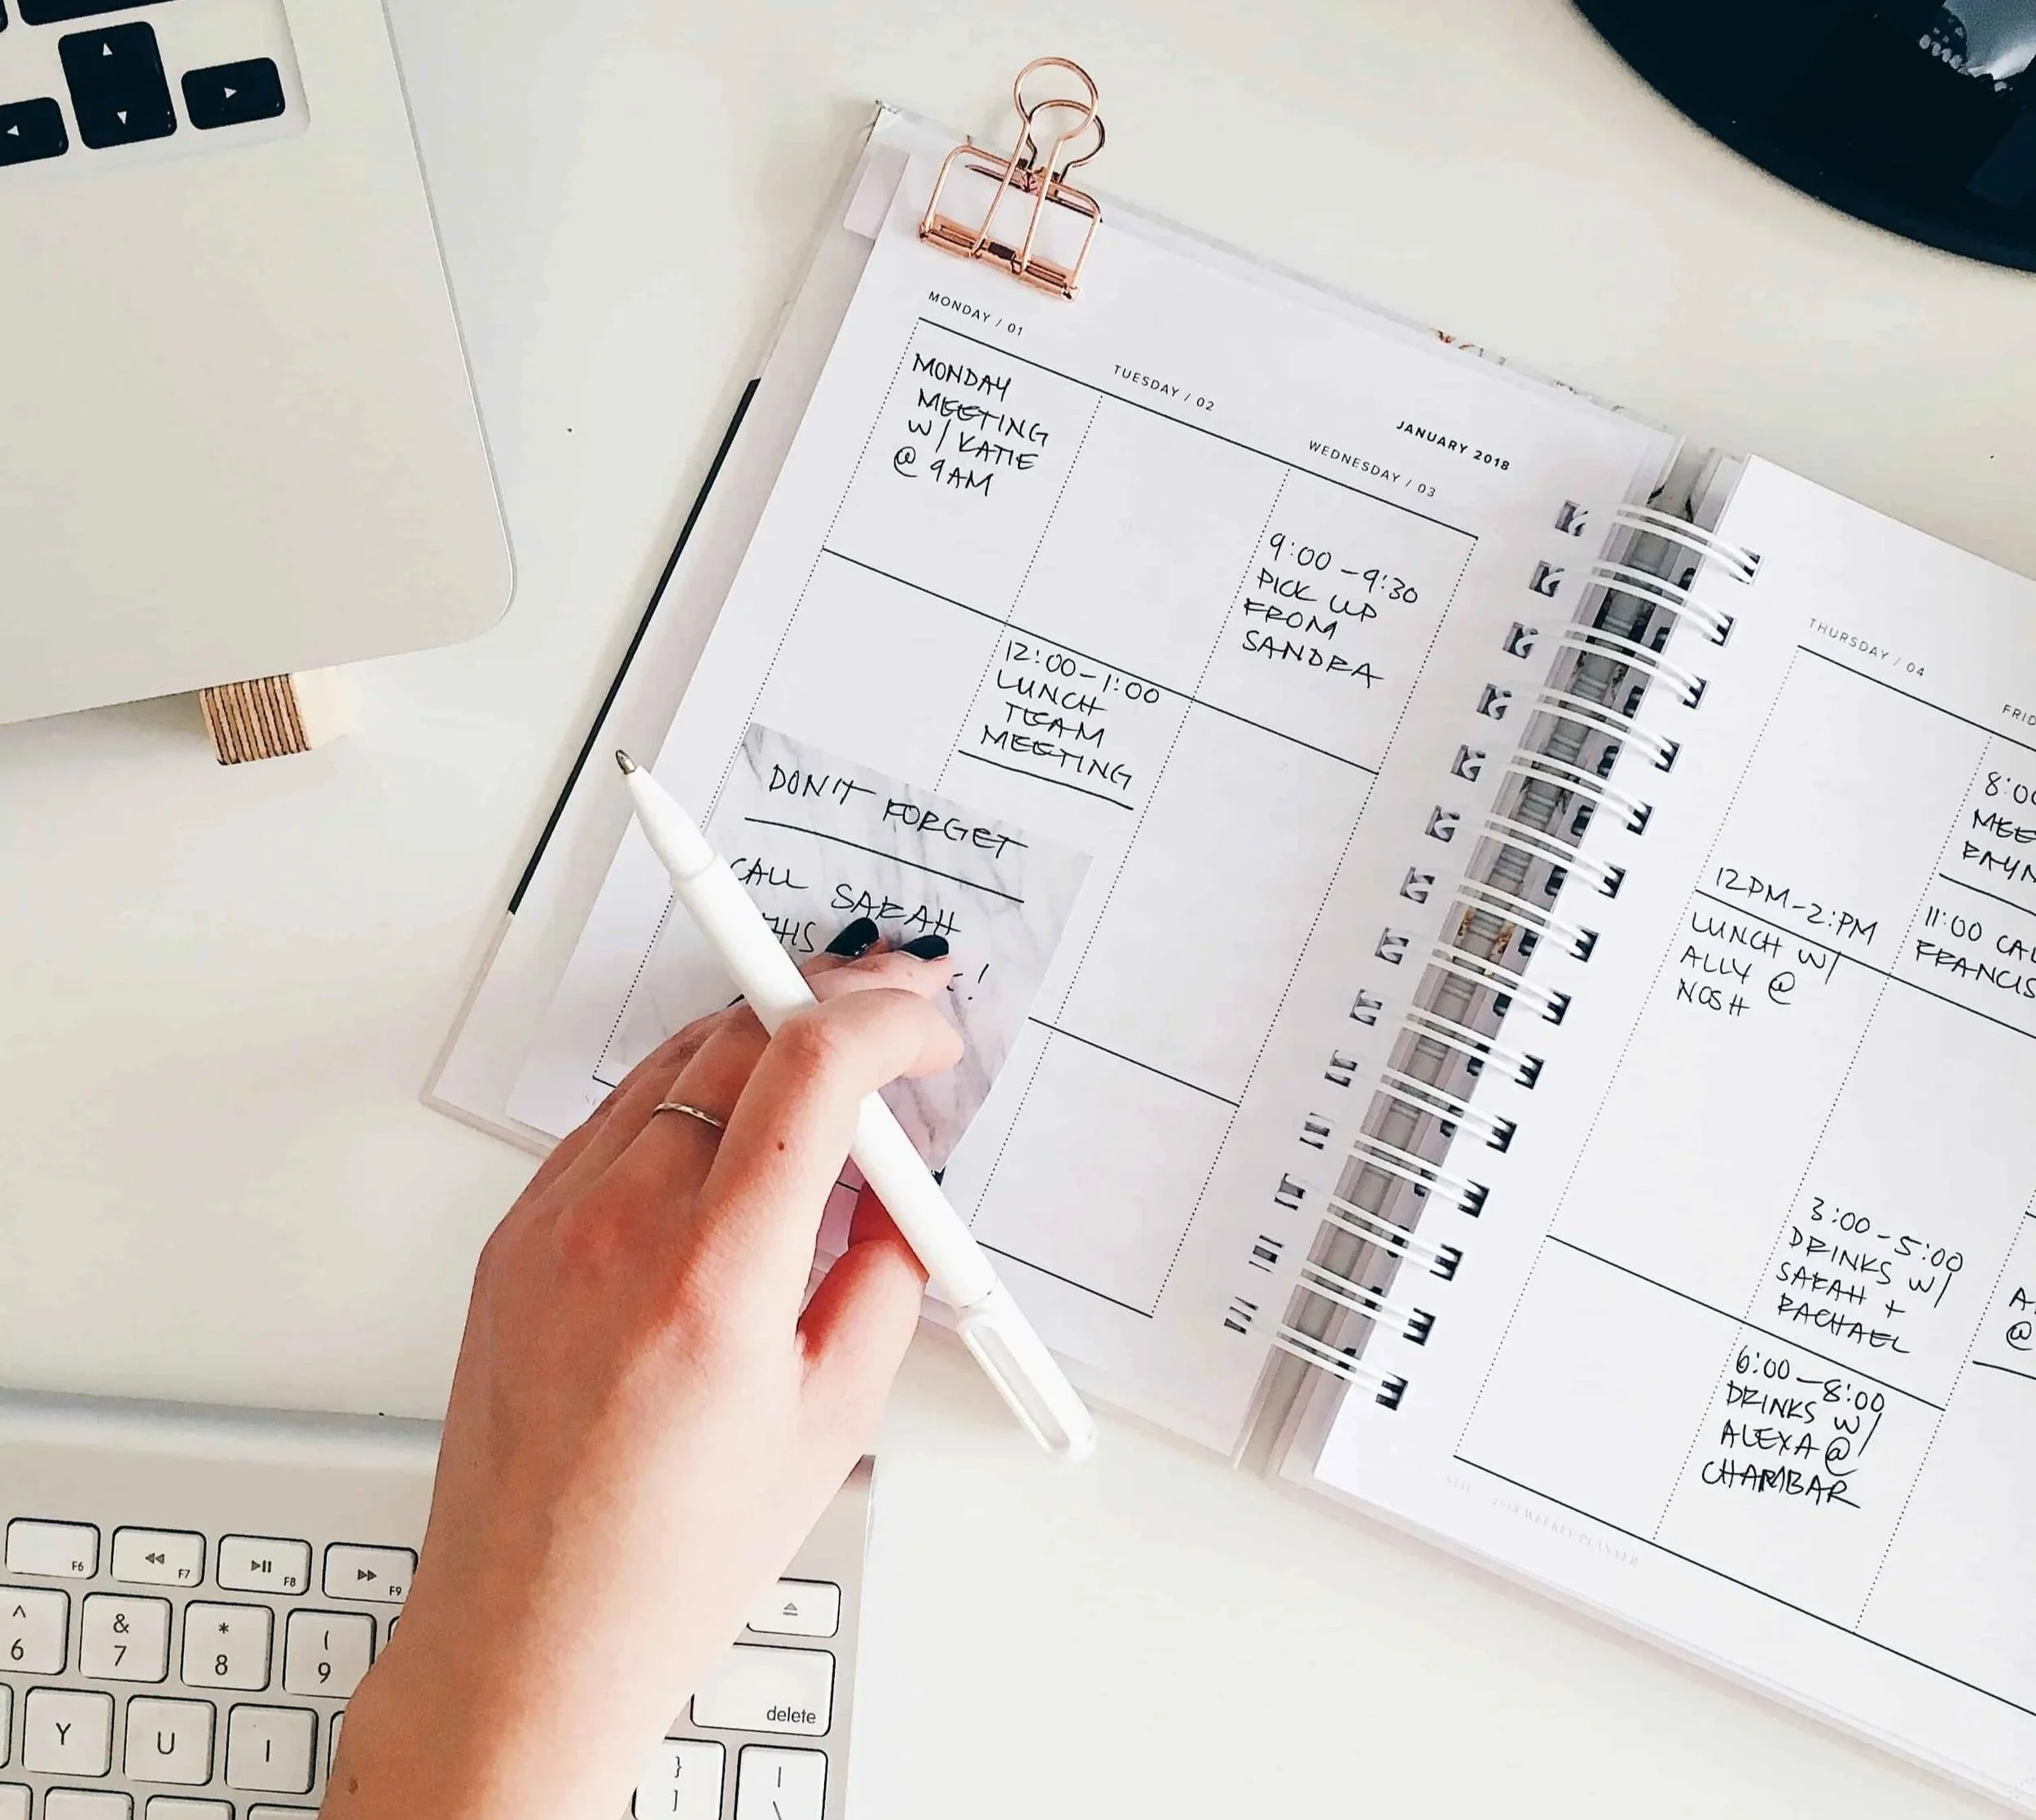 MONDAY / 01
MONDAY
MEETING
W/ KATIE
@ 9AM
TUESDAY / 02
12:00-1:00
LUNCH
TEAM
MEETING
JANUARY 2018
WEDNESDAY / 03
9:00-9:30
PICK UP
FROM
SANDRA
DON'T FORGET
CALL SARAH
THURSDAY / 04
12PM-2:PM
LUNCH W/
ALLY @
NOSH
8:00
11:00
FRANCIS
3:00-5:00
DRINKS W/
SARAH +
RACHAEL
6:00-8:00
DRINKS W/
ALEXA @
CHAMBAR
@
2018 WEEKLY PLANNER
F6
F7
F8
F9
^
6
&
7
*
8
(
9
Y
U
I
delete
}
]
|
\